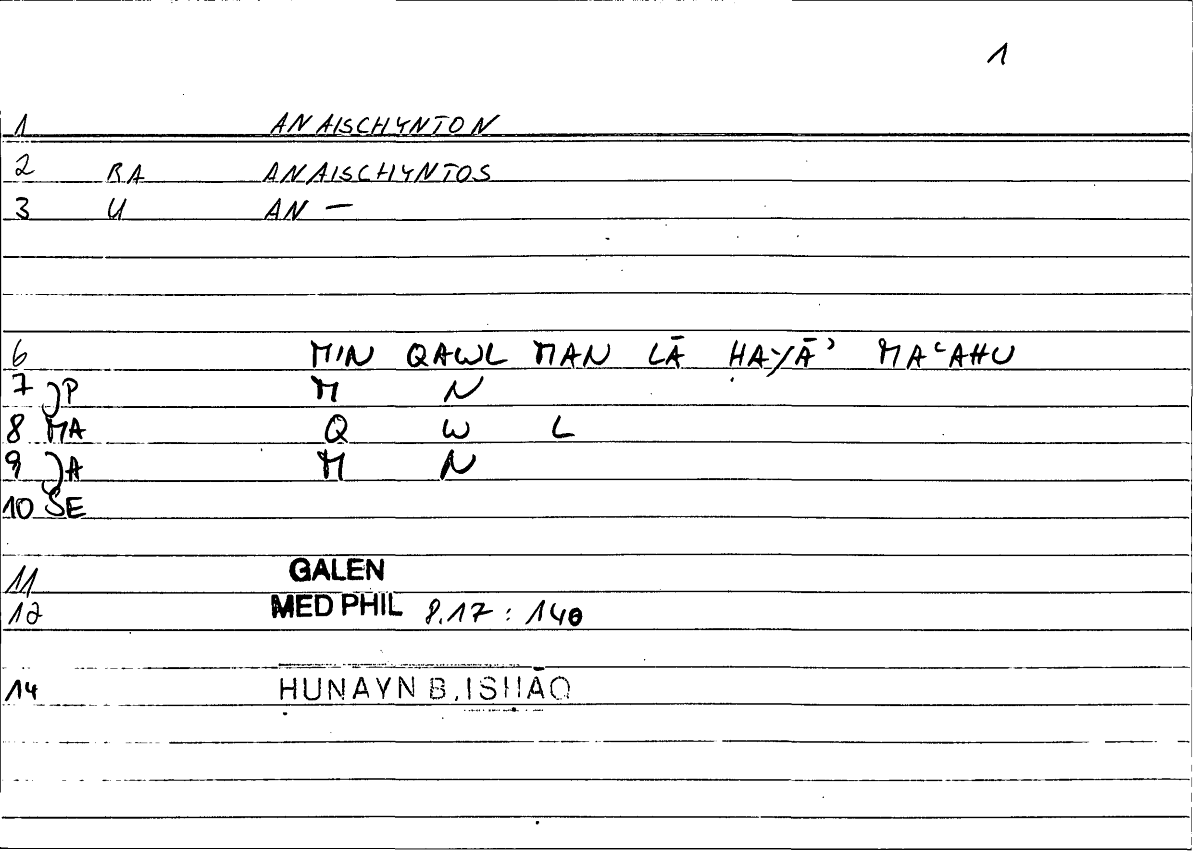 1
1 ANAISCHYNTON
2 RA ANAISCHYNTOS
3 U AN —
6 MIN QAWL MAN LĀ ḤAYĀʾ MAʿAHU
7 JP M N
8 MA Q W L
9 JA M N
10 SE
11 GALEN
12 MED PHIL 8.17 : 140
14 ḤUNAYN B. ISḤĀQ